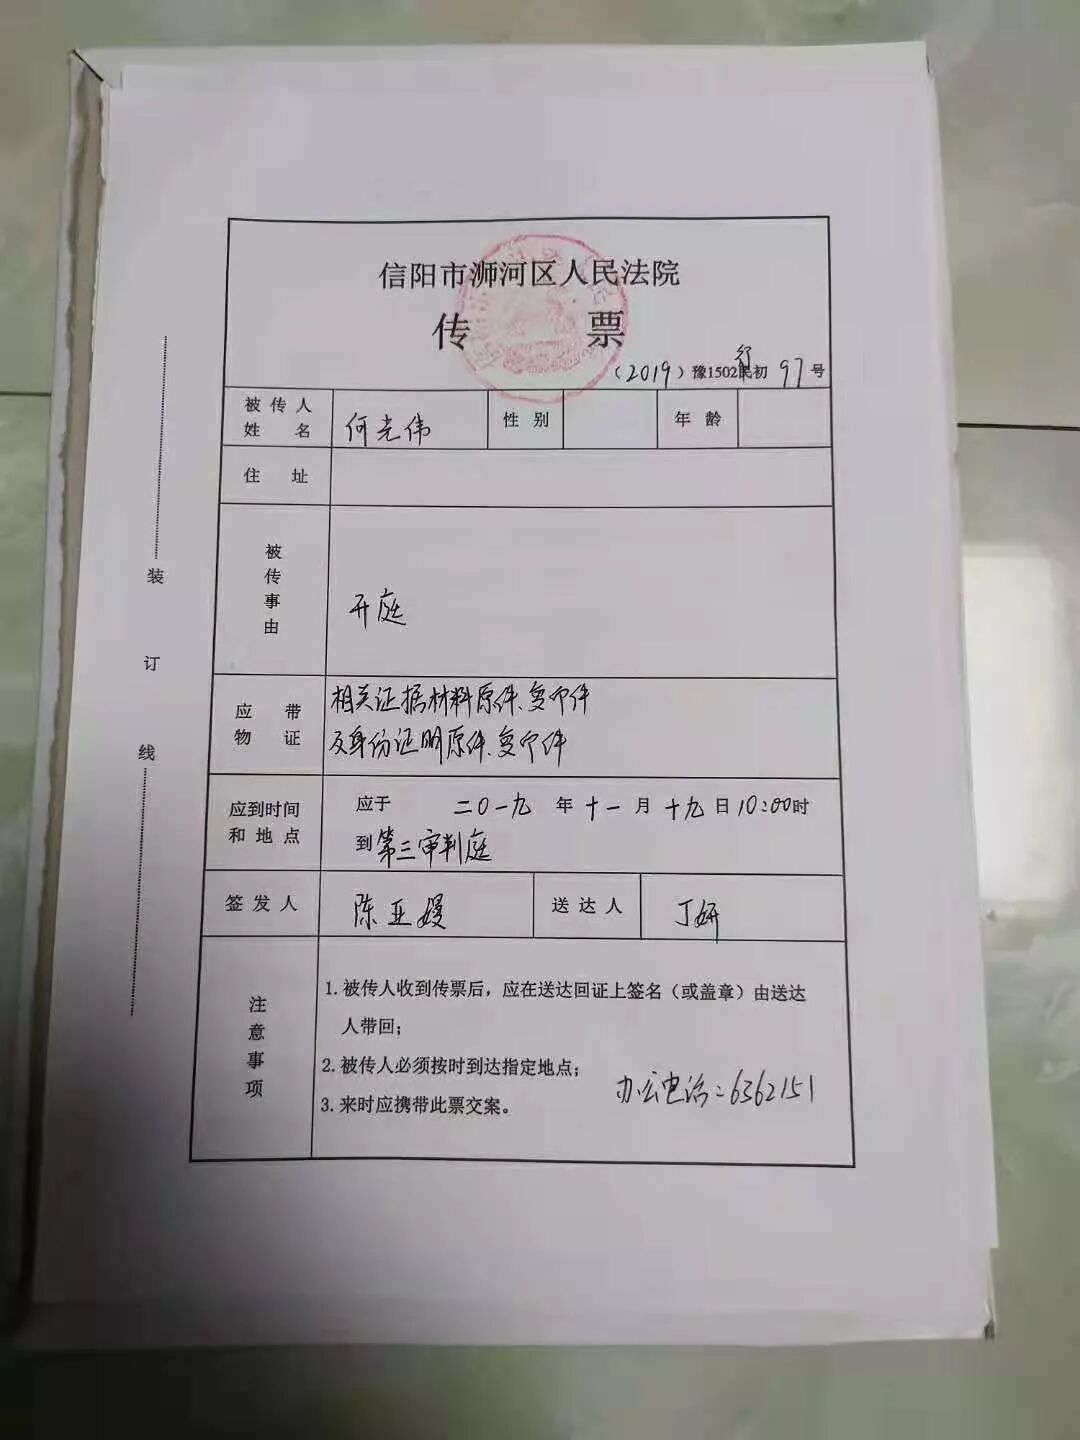 信阳市浉河区人民法院
传 票
（2019）豫1502行初 97 号
被传人姓名 何光伟 性别 年龄
住址
被传事由 开庭
应带物证 相关证据材料原件、复印件
及身份证明原件、复印件
应到时间和地点 应于 二〇一九 年 十一 月 十九 日 10:00时
到第三审判庭
签发人 陈亚嫚 送达人 丁妍
注意事项
1. 被传人收到传票后，应在送达回证上签名（或盖章）由送达
人带回；
2. 被传人必须按时到达指定地点；
3. 来时应携带此票交案。
办公电话：6362151
装 订 线